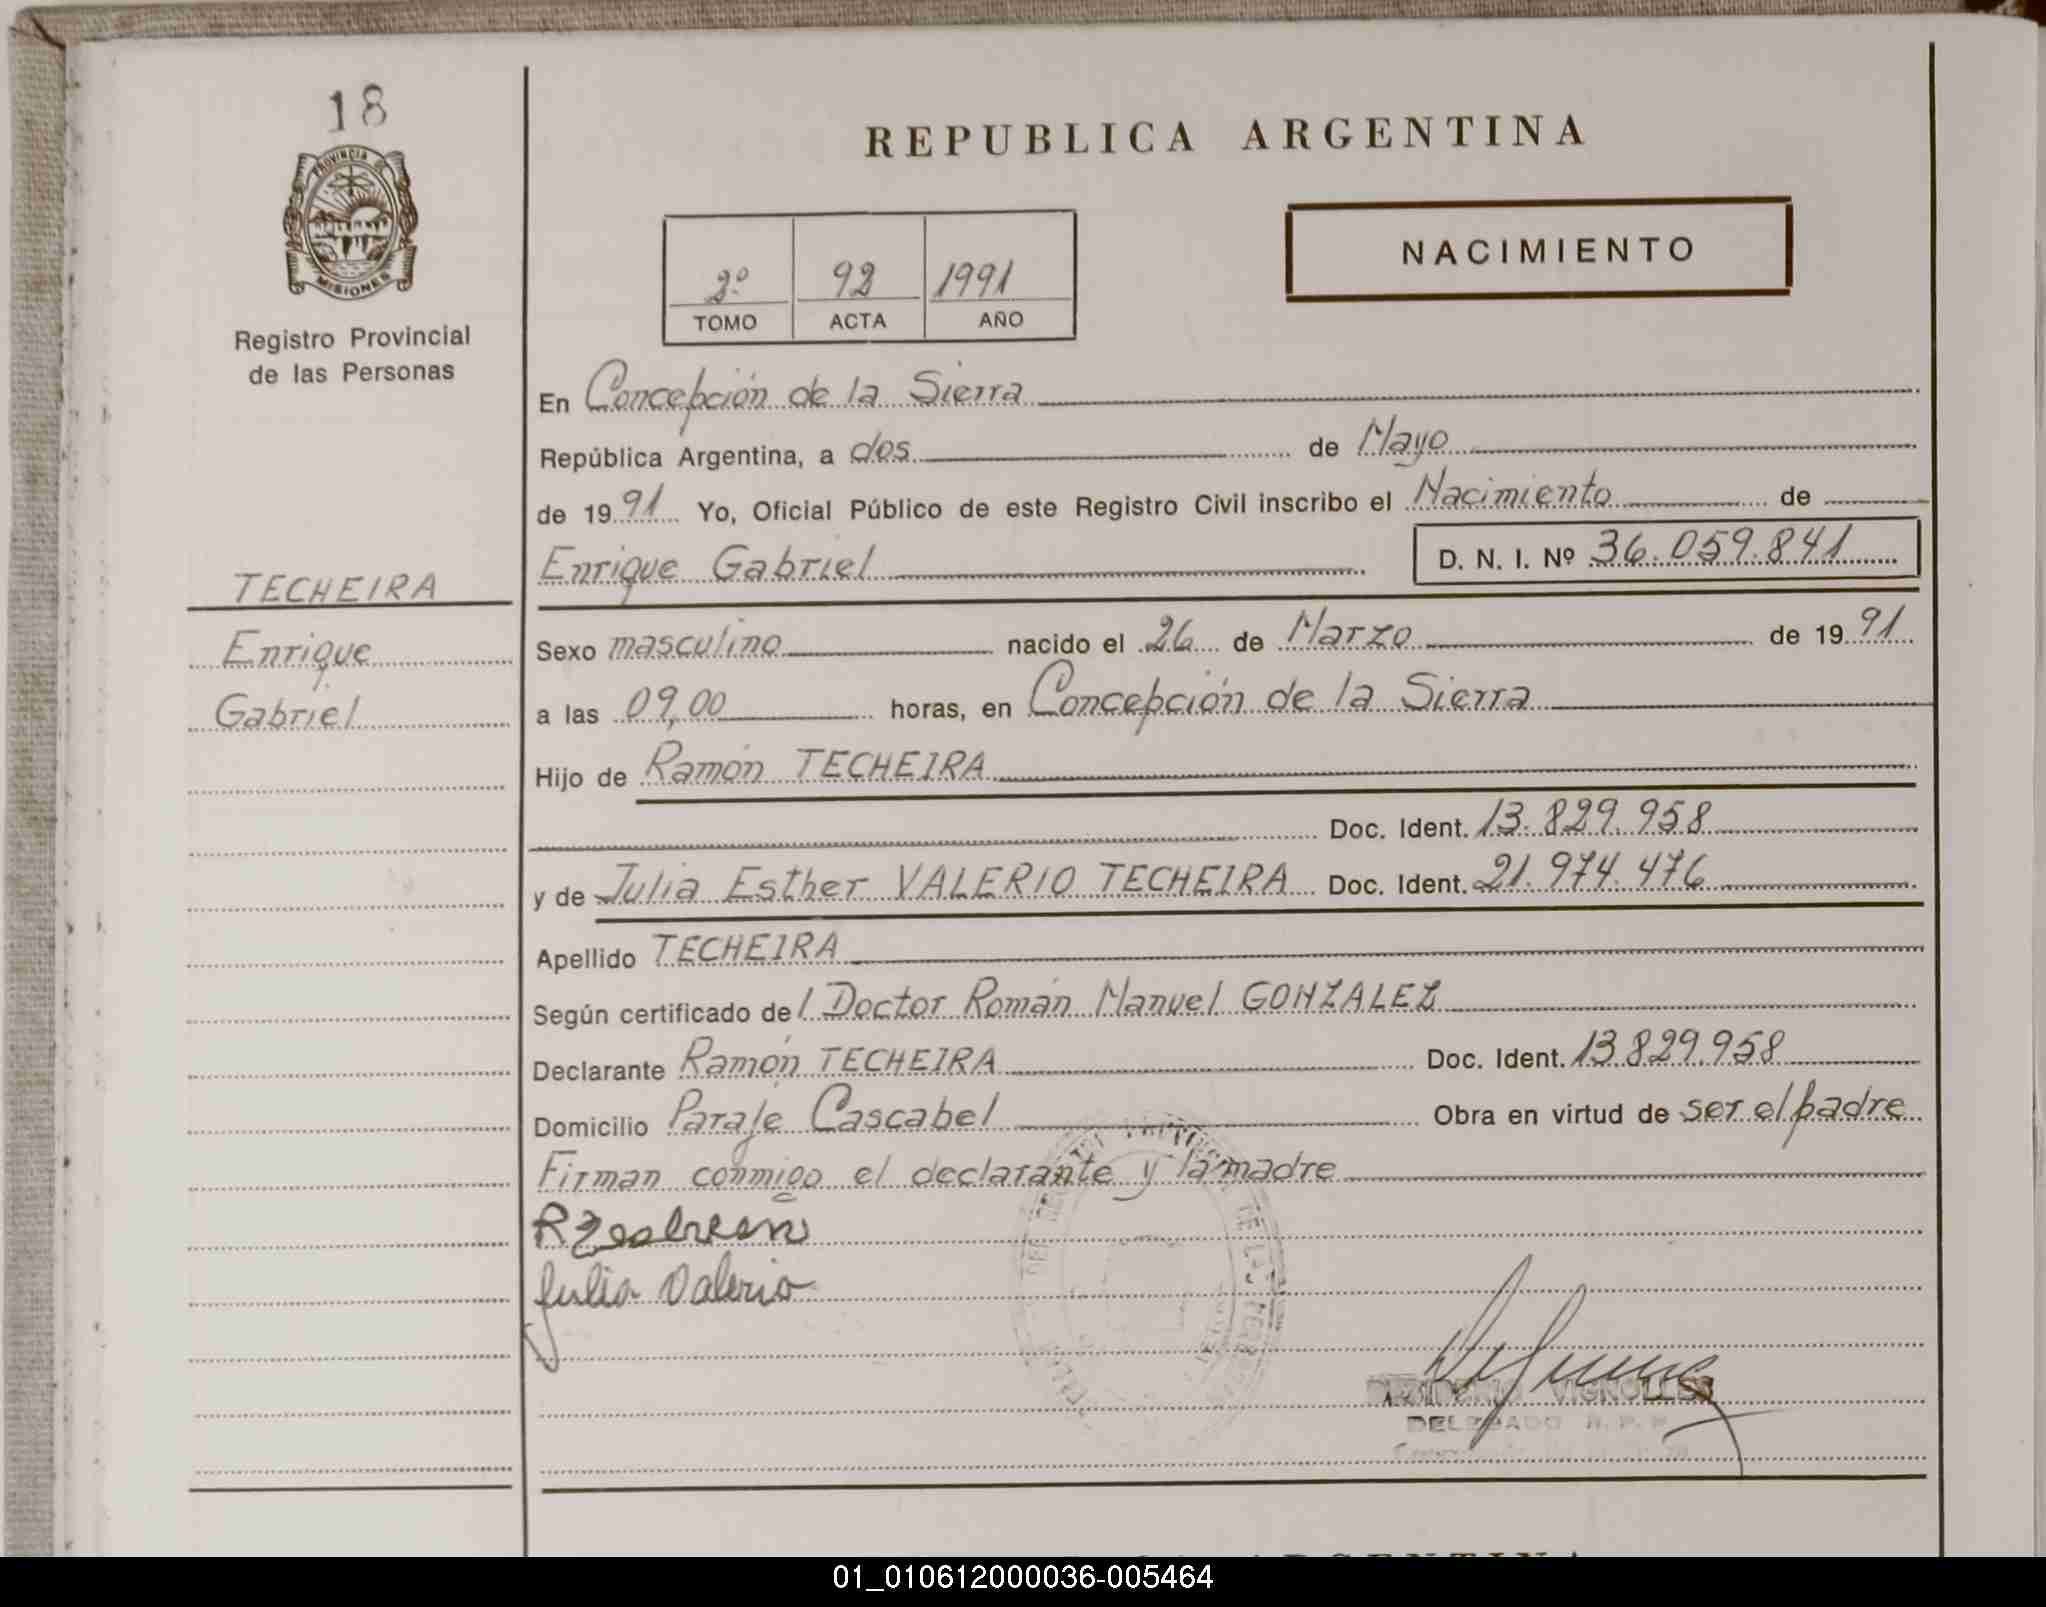 18
PROVINCIA DE
MISIONES
Registro Provincial
de las Personas
TECHEIRA
Enrique
Gabriel
REPUBLICA ARGENTINA
NACIMIENTO
2º 92 1991
TOMO ACTA AÑO
En Concepción de la Sierra
República Argentina, a dos de Mayo
de 1991 Yo, Oficial Público de este Registro Civil inscribo el Nacimiento de
Enrique Gabriel D. N. I. Nº 36.059.841
Sexo masculino nacido el 26 de Marzo de 1991
a las 09,00 horas, en Concepción de la Sierra
Hijo de Ramón TECHEIRA
Doc. Ident. 13.829.958
y de Julia Esther VALERIO TECHEIRA Doc. Ident. 21.974.476
Apellido TECHEIRA
Según certificado del Doctor Román Manuel GONZALEZ
Declarante Ramón TECHEIRA Doc. Ident. 13.829.958
Domicilio Paraje Cascabel Obra en virtud de ser el padre
Firman conmigo el declarante y la madre
Julia Valerio
VIGNOLLES
DELEGADO R. P. P.
01_010612000036-005464